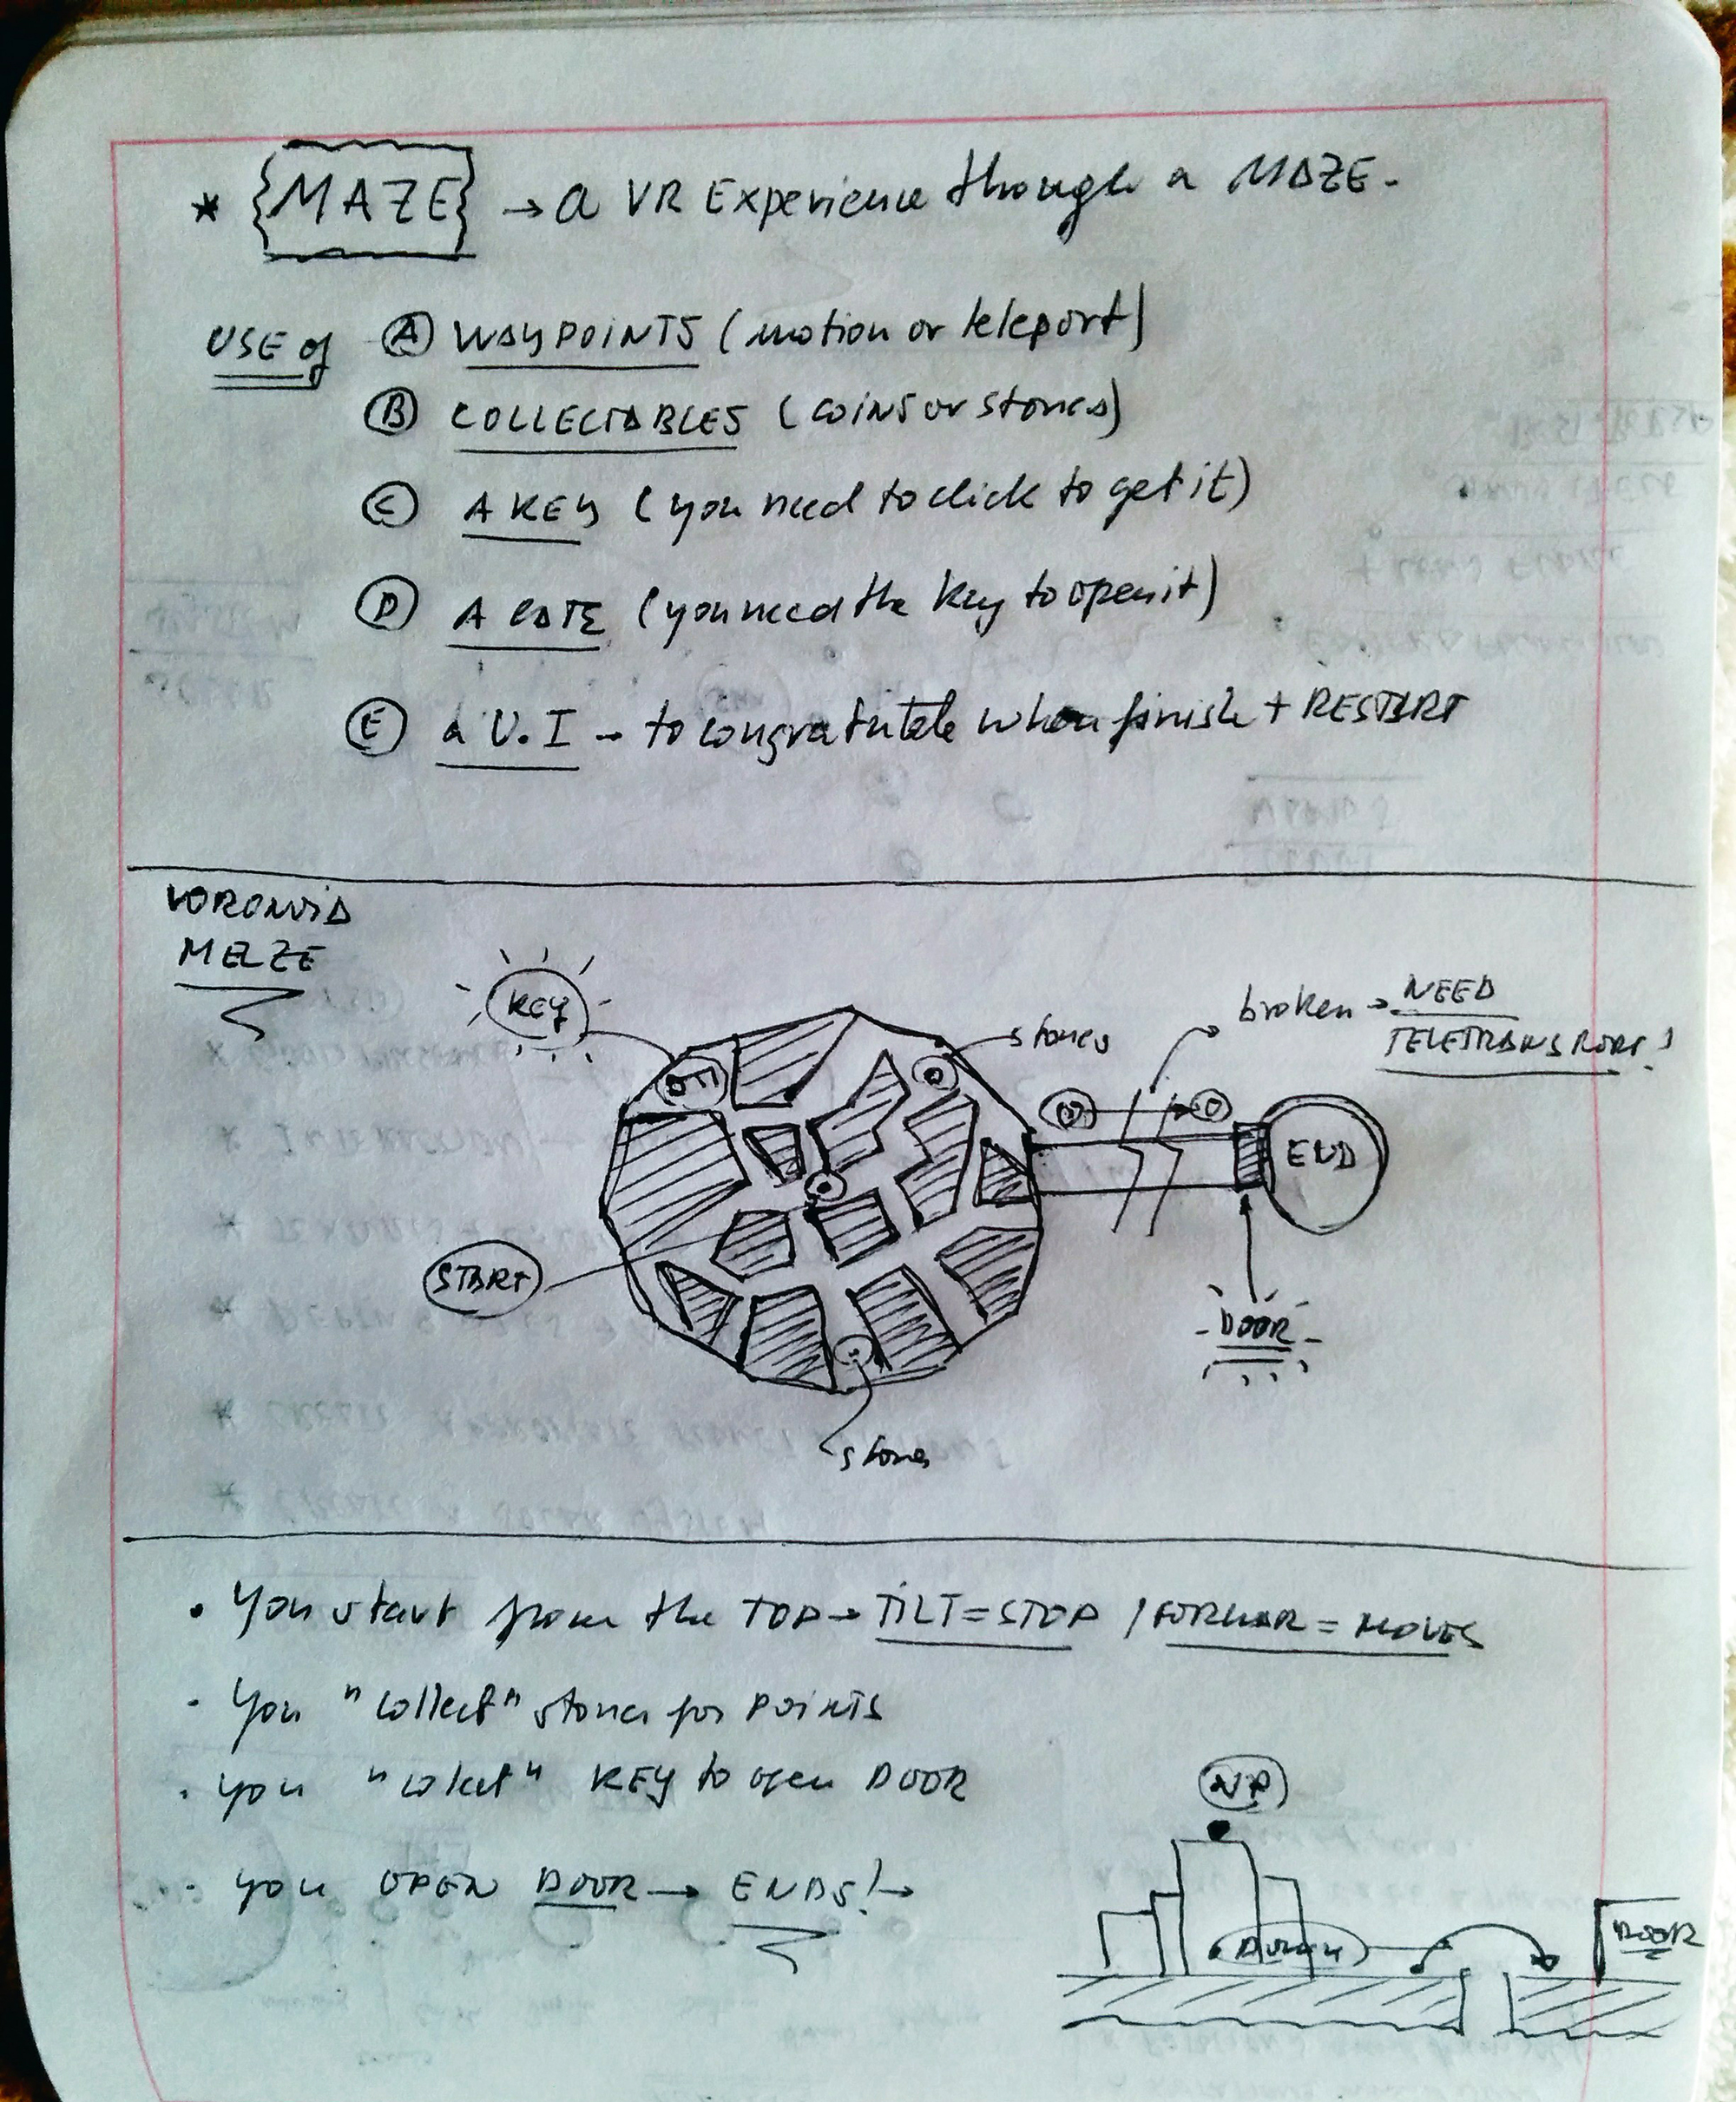 * {MAZE} → a VR Experience though a MAZE.
USE of Ⓐ WAYPOINTS (motion or teleport)
Ⓑ COLLECTABLES (coins or stones)
Ⓒ A KEY (you need to click to get it)
Ⓓ A GATE (you need the key to open it)
Ⓔ a U.I - to congratulate when finish + RESTART
MAZE
KEY
stones
broken → NEED
TELETRANSPORT!
END
START
DOOR
stones
• You start from the TOP → TILT = STOP / FORWAR = MOVES
• You "collect" stones for POINTS
• you "collect" KEY to open DOOR
• you OPEN DOOR → ENDS! →
UP
DOWN
DOOR